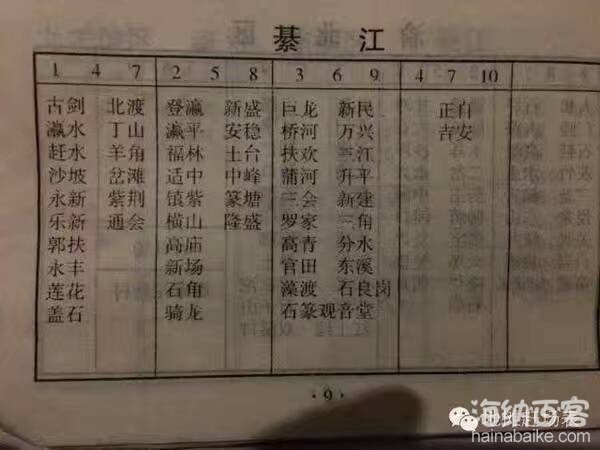 綦江
1 4 7 2 5 8 3 6 9 4 7 10
古剑 北渡 登瀛 新盛 巨龙 新民 正自
瀛水 丁山 瀛平 安稳 桥河 万兴 吉安
赶水 羊角 福林 土台 扶欢 三江
沙坡 岔滩 适中 中峰 蒲河 升平
永新 紫荆 镇紫 篆塘 三会 新建
乐新 通会 横山 隆盛 罗家 三角
郭扶 高庙 高青 分水
永丰 新场 官田 东溪
莲花 石角 藻渡 石良岗
盖石 骑龙 石篆 观音堂
·9·
海纳百客
hainabaike.com